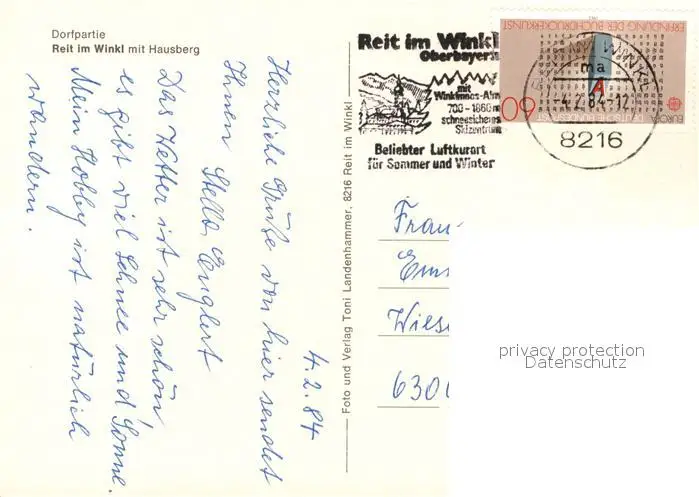 Dorfpartie
Reit im Winkl mit Hausberg
4.2.84
Herzliche Grüße von hier sendet
Ihnen Stella Englert
Das Wetter ist sehr schön
es gibt viel Schnee und Sonne.
Mein Hobby ist natürlich
wandern.
Foto und Verlag Toni Landenhammer, 8216 Reit im Winkl
Reit im Winkl
Oberbayern
mit
Winklmoos-Alm
700-1860m
schneesicheres
Skizentrum
Beliebter Luftkurort
für Sommer und Winter
ERFINDUNG DER BUCHDRUCKERKUNST
DEUTSCHE BUNDESPOST
EUROPA
60
A
ma
-4.2.84-12
8216
Frau
Wies
630
privacy protection
Datenschutz